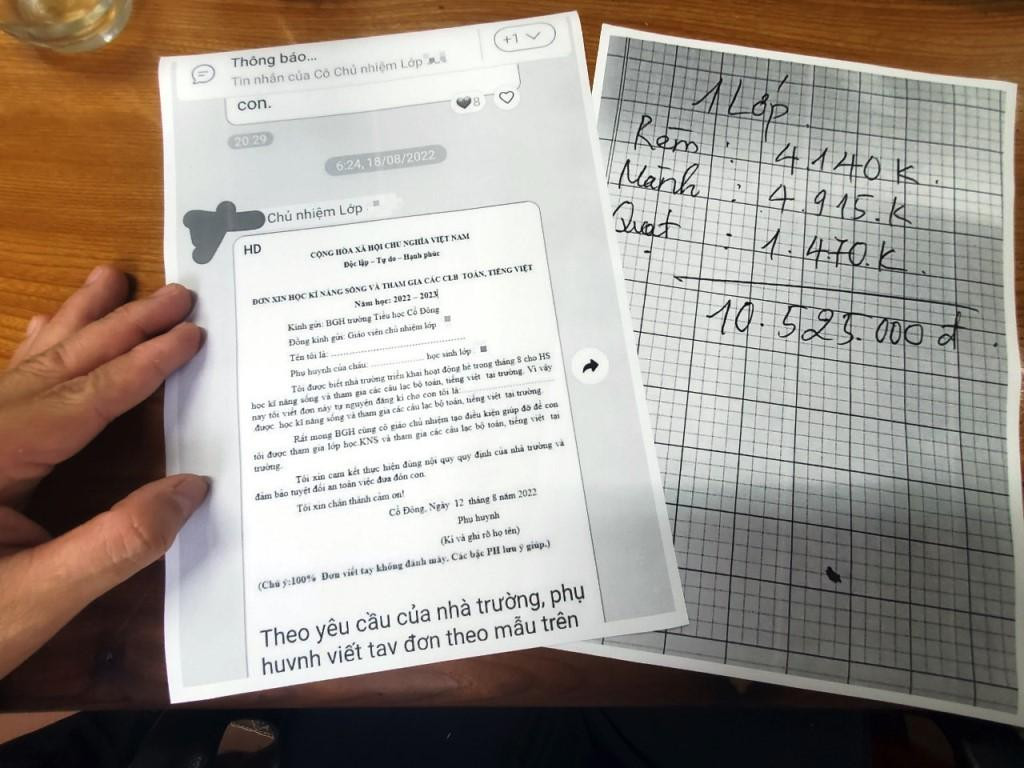 Thông báo...
Tin nhắn của Cô Chủ nhiệm Lớp
+1
con.
8
20:29
6:24, 18/08/2022
Chủ nhiệm Lớp
HD
CỘNG HÒA XÃ HỘI CHỦ NGHĨA VIỆT NAM
Độc lập – Tự do – Hạnh phúc
ĐƠN XIN HỌC KĨ NĂNG SỐNG VÀ THAM GIA CÁC CLB TOÁN, TIẾNG VIỆT
Năm học: 2022 – 2023
Kính gửi: BGH trường Tiểu học Cổ Đông
Đồng kính gửi: Giáo viên chủ nhiệm lớp
Tên tôi là: ..................................................
Phụ huynh của cháu: .................... học sinh lớp
Tôi được biết nhà trường triển khai hoạt động hè trong tháng 8 cho HS
học kĩ năng sống và tham gia các câu lạc bộ toán, tiếng việt tại trường. Vì vậy
nay tôi viết đơn này tự nguyện đăng kí cho con tôi là: ..............................
được học kĩ năng sống và tham gia các câu lạc bộ toán, tiếng việt tại trường.
Rất mong BGH cùng cô giáo chủ nhiệm tạo điều kiện giúp đỡ để con
tôi được tham gia lớp học KNS và tham gia các câu lạc bộ toán, tiếng việt tại
trường.
Tôi xin cam kết thực hiện đúng nội quy quy định của nhà trường và
đảm bảo tuyệt đối an toàn việc đưa đón con.
Tôi xin chân thành cảm ơn!
Cổ Đông, Ngày 12 tháng 8 năm 2022
Phụ huynh
(Kí và ghi rõ họ tên)
(Chú ý:100% Đơn viết tay không đánh máy. Các bậc PH lưu ý giúp.)
Theo yêu cầu của nhà trường, phụ
huynh viết tay đơn theo mẫu trên
1 Lớp
Rèm : 4.140K.
Mành : 4.915.K
Quạt : 1.470.K.
10.523.000 đ.